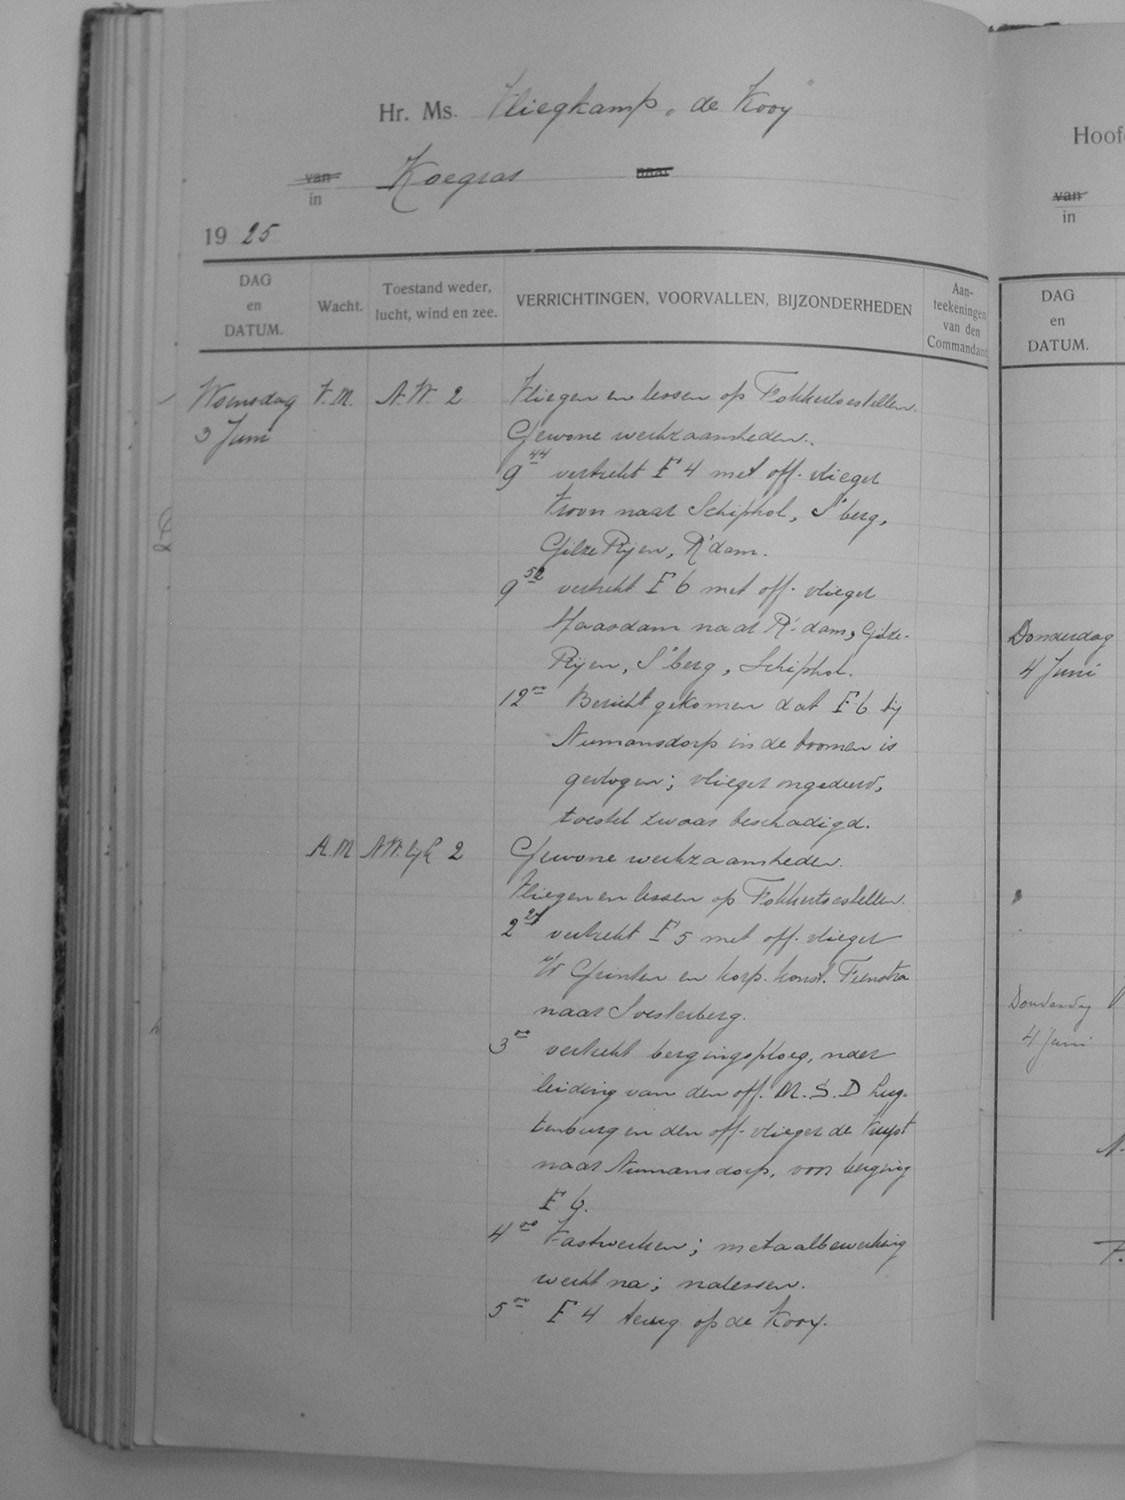 Hr. Ms. Vliegkamp „de Kooy"
van Koegras naar
in
1925
DAG en DATUM. Wacht. Toestand weder, lucht, wind en zee. VERRICHTINGEN, VOORVALLEN, BIJZONDERHEDEN Aan-teekeningen van den Commandant
Woensdag V.M. N.W. 2 Vliegen en lessen op Fokkertoestellen.
3 Juni Gewone werkzaamheden.
9 44 vertrekt F 4 met off. vlieger
Kroon naar Schiphol, S'berg,
Gilze Rijen, R'dam.
9 52 vertrekt F 6 met off. vlieger
Maasdam naar R'dam, Gilze-
Rijen, S'berg, Schiphol.
12 00 Bericht gekomen dat F 6 bij
Numansdorp in de boomen is
gevlogen; vlieger ongedeerd,
toestel zwaar beschadigd.
A.M. 2 Gewone werkzaamheden.
Vliegen en lessen op Fokkertoestellen.
2 27 vertrekt F 5 met off. vlieger
en korp. konst. Feenstra
naar Soesterberg.
3 00 vertrekt bergingsploeg, onder
leiding van den off. M.S.D Lug-
tenburg en den off. vlieger de
naar Numansdorp, voor berging
F 6.
4 00 Vastwerken; metaalbewerking
werkt na; nalessen.
5 00 F 4 terug op de Kooy.
Hoof
van
in
DAG
en
DATUM.
Donderdag
4 Juni
Donderdag
4 Juni